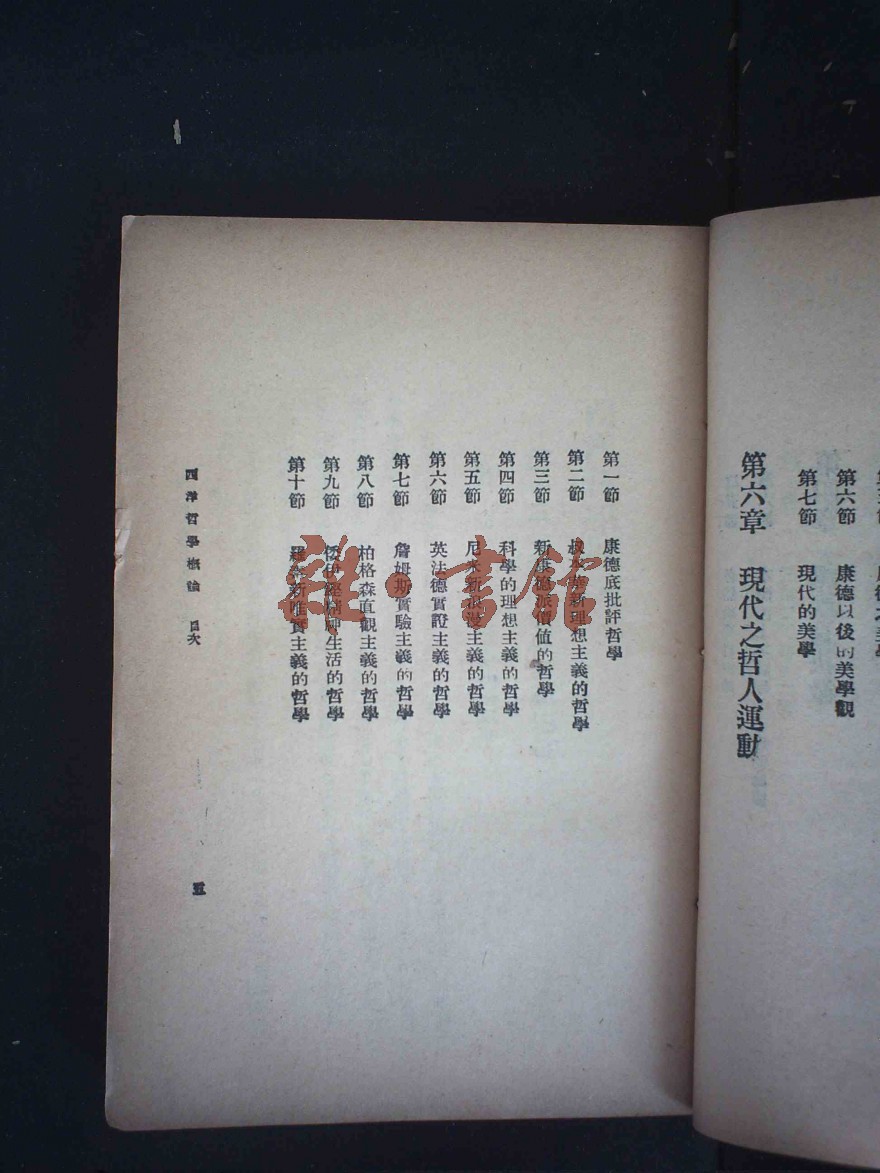 康德之美學
第六節 康德以後的美學觀
第七節 現代的美學
第六章 現代之哲人運動
第一節 康德底批評哲學
第二節 叔本華新理想主義的哲學
第三節 新康德派價值的哲學
第四節 科學的理想主義的哲學
第五節 尼采新浪漫主義的哲學
第六節 英法德實證主義的哲學
第七節 詹姆斯實驗主義的哲學
第八節 柏格森直觀主義的哲學
第九節 倭伊鏗精神生活的哲學
第十節 羅素新唯實主義的哲學
西洋哲學概論 目次
五
雜書館